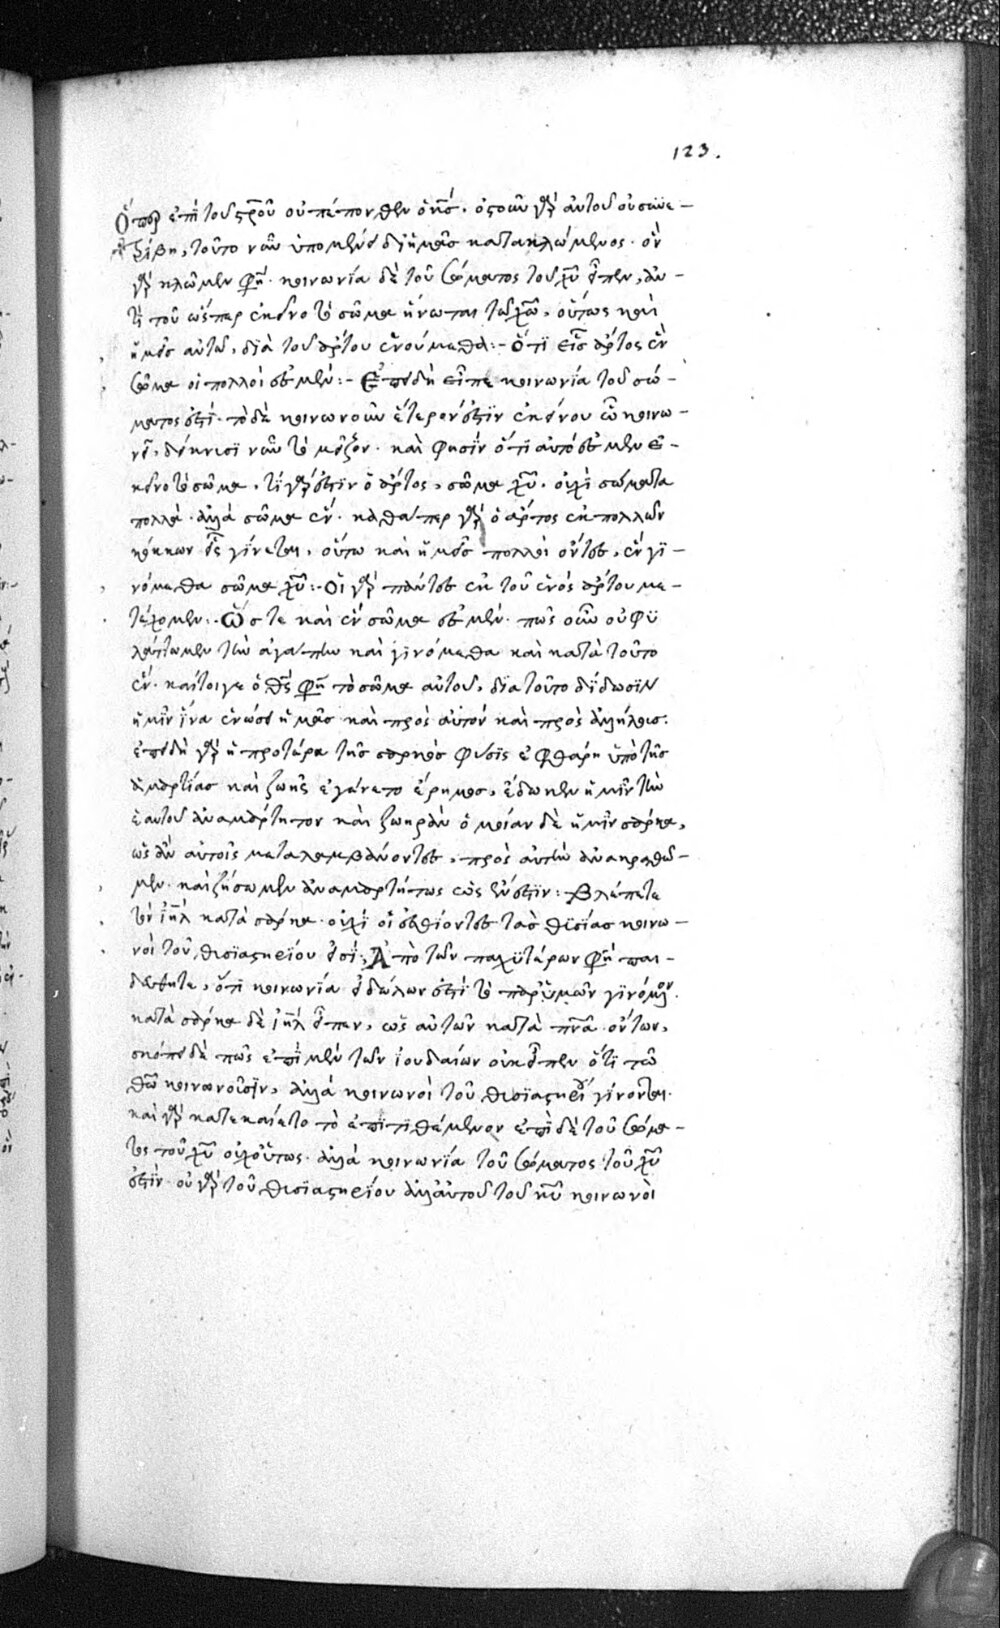 123.
Ὅπερ ἐπὶ τοῦ σ̅ρ̅οῦ οὐ πέπονθεν ὁ κ̅ς̅. ὀστοῦν γὰρ αὐτοῦ οὐ συνε-
τρίβη, τοῦτο νῦν ὑπομένει δι' ἡμᾶς κατακλώμενος. ὃν
γὰρ κλῶμεν φη. κοινωνία δὲ τοῦ σώματος τοῦ χ̅υ̅ εἶπεν, ἀν-
τὶ τοῦ ὥσπερ ἐκεῖνο τὸ σῶμα ἥνωται τῷ χ̅ω̅, οὕτως καὶ
ἡμεῖς αὐτῷ, διὰ τοῦ ἄρτου ἑνούμεθα:- Ὅτι εἷς ἄρτος ἓν
σῶμα οἱ πολλοί ἐσμεν:- Ἐπειδὴ εἶπε κοινωνία τοῦ σώ-
ματος ἐστί. τὸ δὲ κοινωνοῦν ἕτερόν ἐστιν ἐκείνου ᾧ κοινω-
νεῖ, δείκνυσι νῦν τὸ μεῖζον. καὶ φησὶν ὅτι αὐτό ἐσμεν ἐ-
κεῖνο τὸ σῶμα, τί γάρ ἐστιν ὁ ἄρτος, σῶμα χ̅υ̅. οὐχὶ σώματα
πολλά. ἀλλὰ σῶμα ἕν. καθάπερ γὰρ ὁ ἄρτος ἐκ πολλῶν
κόκκων εἷς γίνεται, οὕτω καὶ ἡμεῖς πολλοὶ ὄντες, ἓν γι-
νόμεθα σῶμα χ̅υ̅:- Οἱ γὰρ πάντες ἐκ τοῦ ἑνὸς ἄρτου με-
τέχομεν:- Ὥστε καὶ ἓν σῶμα ἐσμέν. πῶς οὖν οὐ φυ
λάττωμεν τὴν ἀγάπην καὶ γινόμεθα καὶ κατὰ τοῦτο
ἕν. καίτοιγε ὁ θ̅ς̅ φη τὸ σῶμα αὐτοῦ, διὰ τοῦτο δίδωσιν
ἡμῖν ἵνα ἑνώσῃ ἡμᾶς καὶ πρὸς αὐτὸν καὶ πρὸς ἀλλήλους.
ἐπειδὴ γὰρ ἡ προτέρα τῆς σαρκὸς φύσις ἐφθάρη ὑπὸ τῆς
ἁμαρτίας καὶ ζωῆς ἐγένετο ἔρημος, ἔδωκεν ἡμῖν τὴν
ἑαυτοῦ ἀναμάρτητον καὶ ζωηρὰν ὁμοίαν δὲ ἡμῖν σάρκα,
ὡς ἂν αὐτοῖς μεταλαμβάνοντες, πρὸς αὐτὴν ἀνακραθῶ-
μεν. καὶ ζήσωμεν ἀναμαρτήτως ὡς ἔνεστιν: Βλέπετε
τὸν ι̅η̅λ̅ κατὰ σάρκα. οὐχὶ οἱ ἐσθίοντες τὰς θυσίας κοινω-
νοὶ τοῦ θυσιαστηρίου εἰσί; Ἀπὸ τῶν παχυτέρων φη παι-
δεύετε, ὅτι κοινωνία εἰδώλων ἐστὶ τὸ παρ' ὑμῶν γινόμενον.
κατὰ σάρκα δὲ ι̅η̅λ̅ εἶπεν, ὡς αὐτῶν κατὰ π̅ν̅α̅ ὄντων,
σκόπει δὲ πῶς ἐπὶ μὲν τῶν ἰουδαίων οὐκ εἶπεν ὅτι τῷ
θ̅ω̅ κοινωνοῦσιν, ἀλλὰ κοινωνοὶ τοῦ θυσιαστηρίου γίνονται.
καὶ γὰρ κατεκαίετο τὸ ἐπιτιθέμενον ἐπὶ δὲ τοῦ σώμα-
τος τοῦ χ̅υ̅ οὐχ οὕτως. ἀλλὰ κοινωνία τοῦ σώματος τοῦ χ̅υ̅
ἐστίν. οὐ γὰρ τοῦ θυσιαστηρίου ἀλλ' αὐτοῦ τοῦ κ̅υ̅ κοινωνοὶ